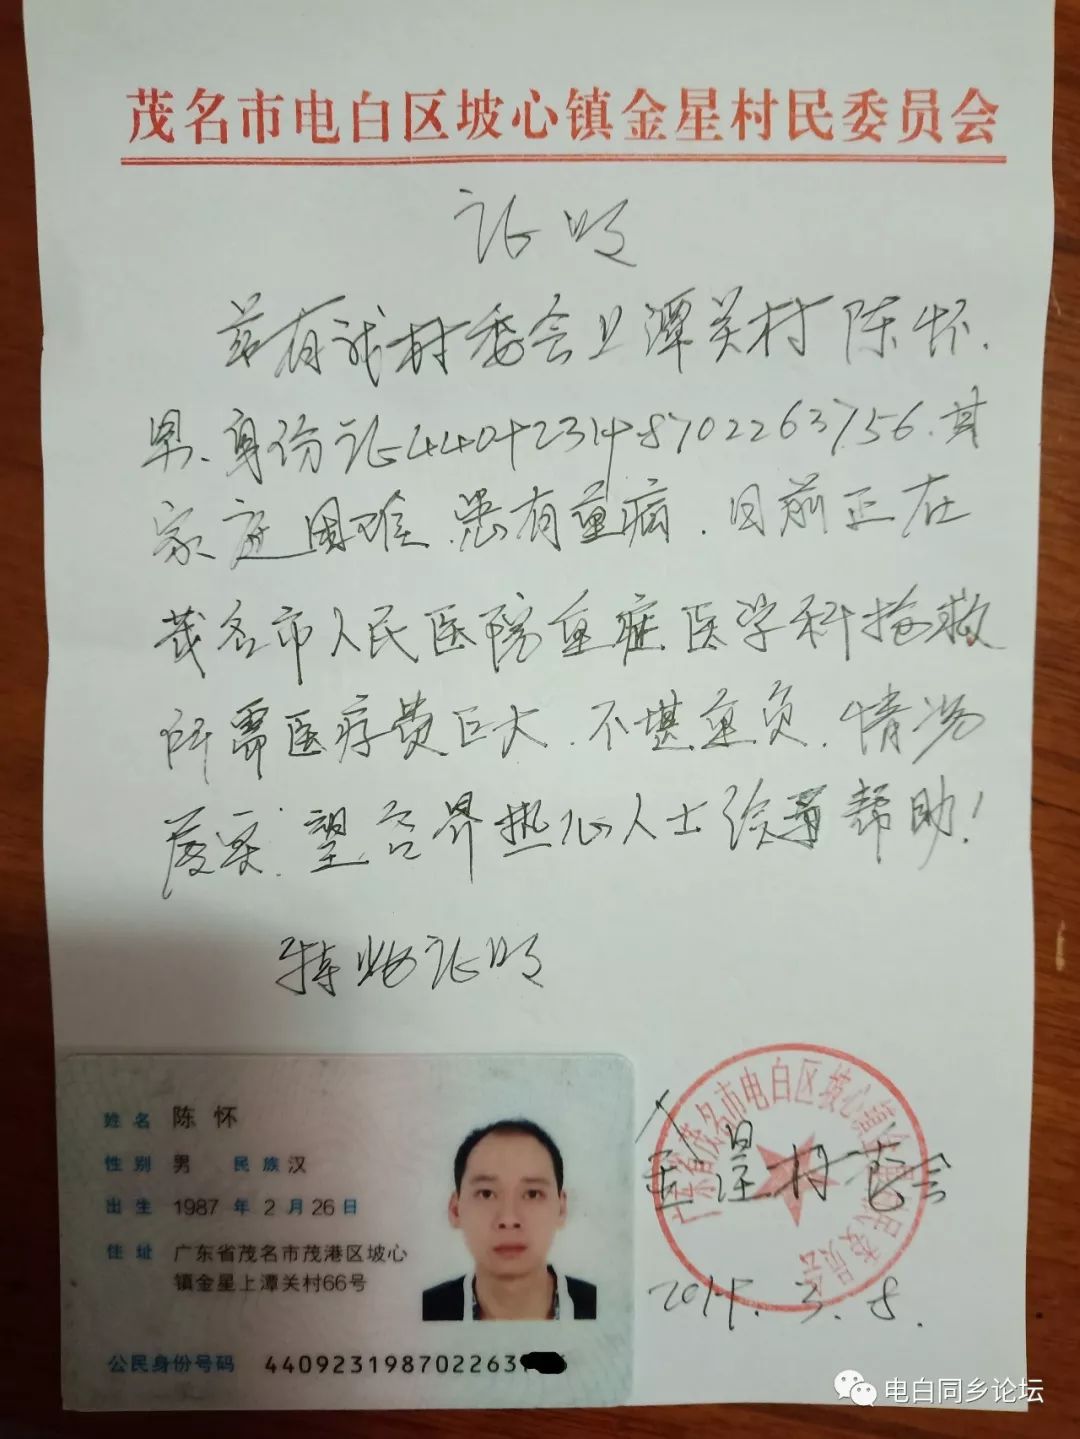 茂名市电白区坡心镇金星村民委员会
证明
兹有我村委会上潭关村陈怀,
男、身份证440923198702263756.其
家庭困难.患有重病.目前正在
茂名市人民医院重症医学科抢救
所需医疗费巨大.不堪重负.情况
属实.望各界热心人士给予帮助!
特此证明
姓名 陈怀
性别 男 民族 汉
出生 1987 年 2 月 26 日
住址 广东省茂名市茂港区坡心
镇金星上潭关村66号
公民身份号码 440923198702263
广东省茂名市电白区坡心镇金星村民委员会
金星村委会
2019.3.8.
电白同乡论坛